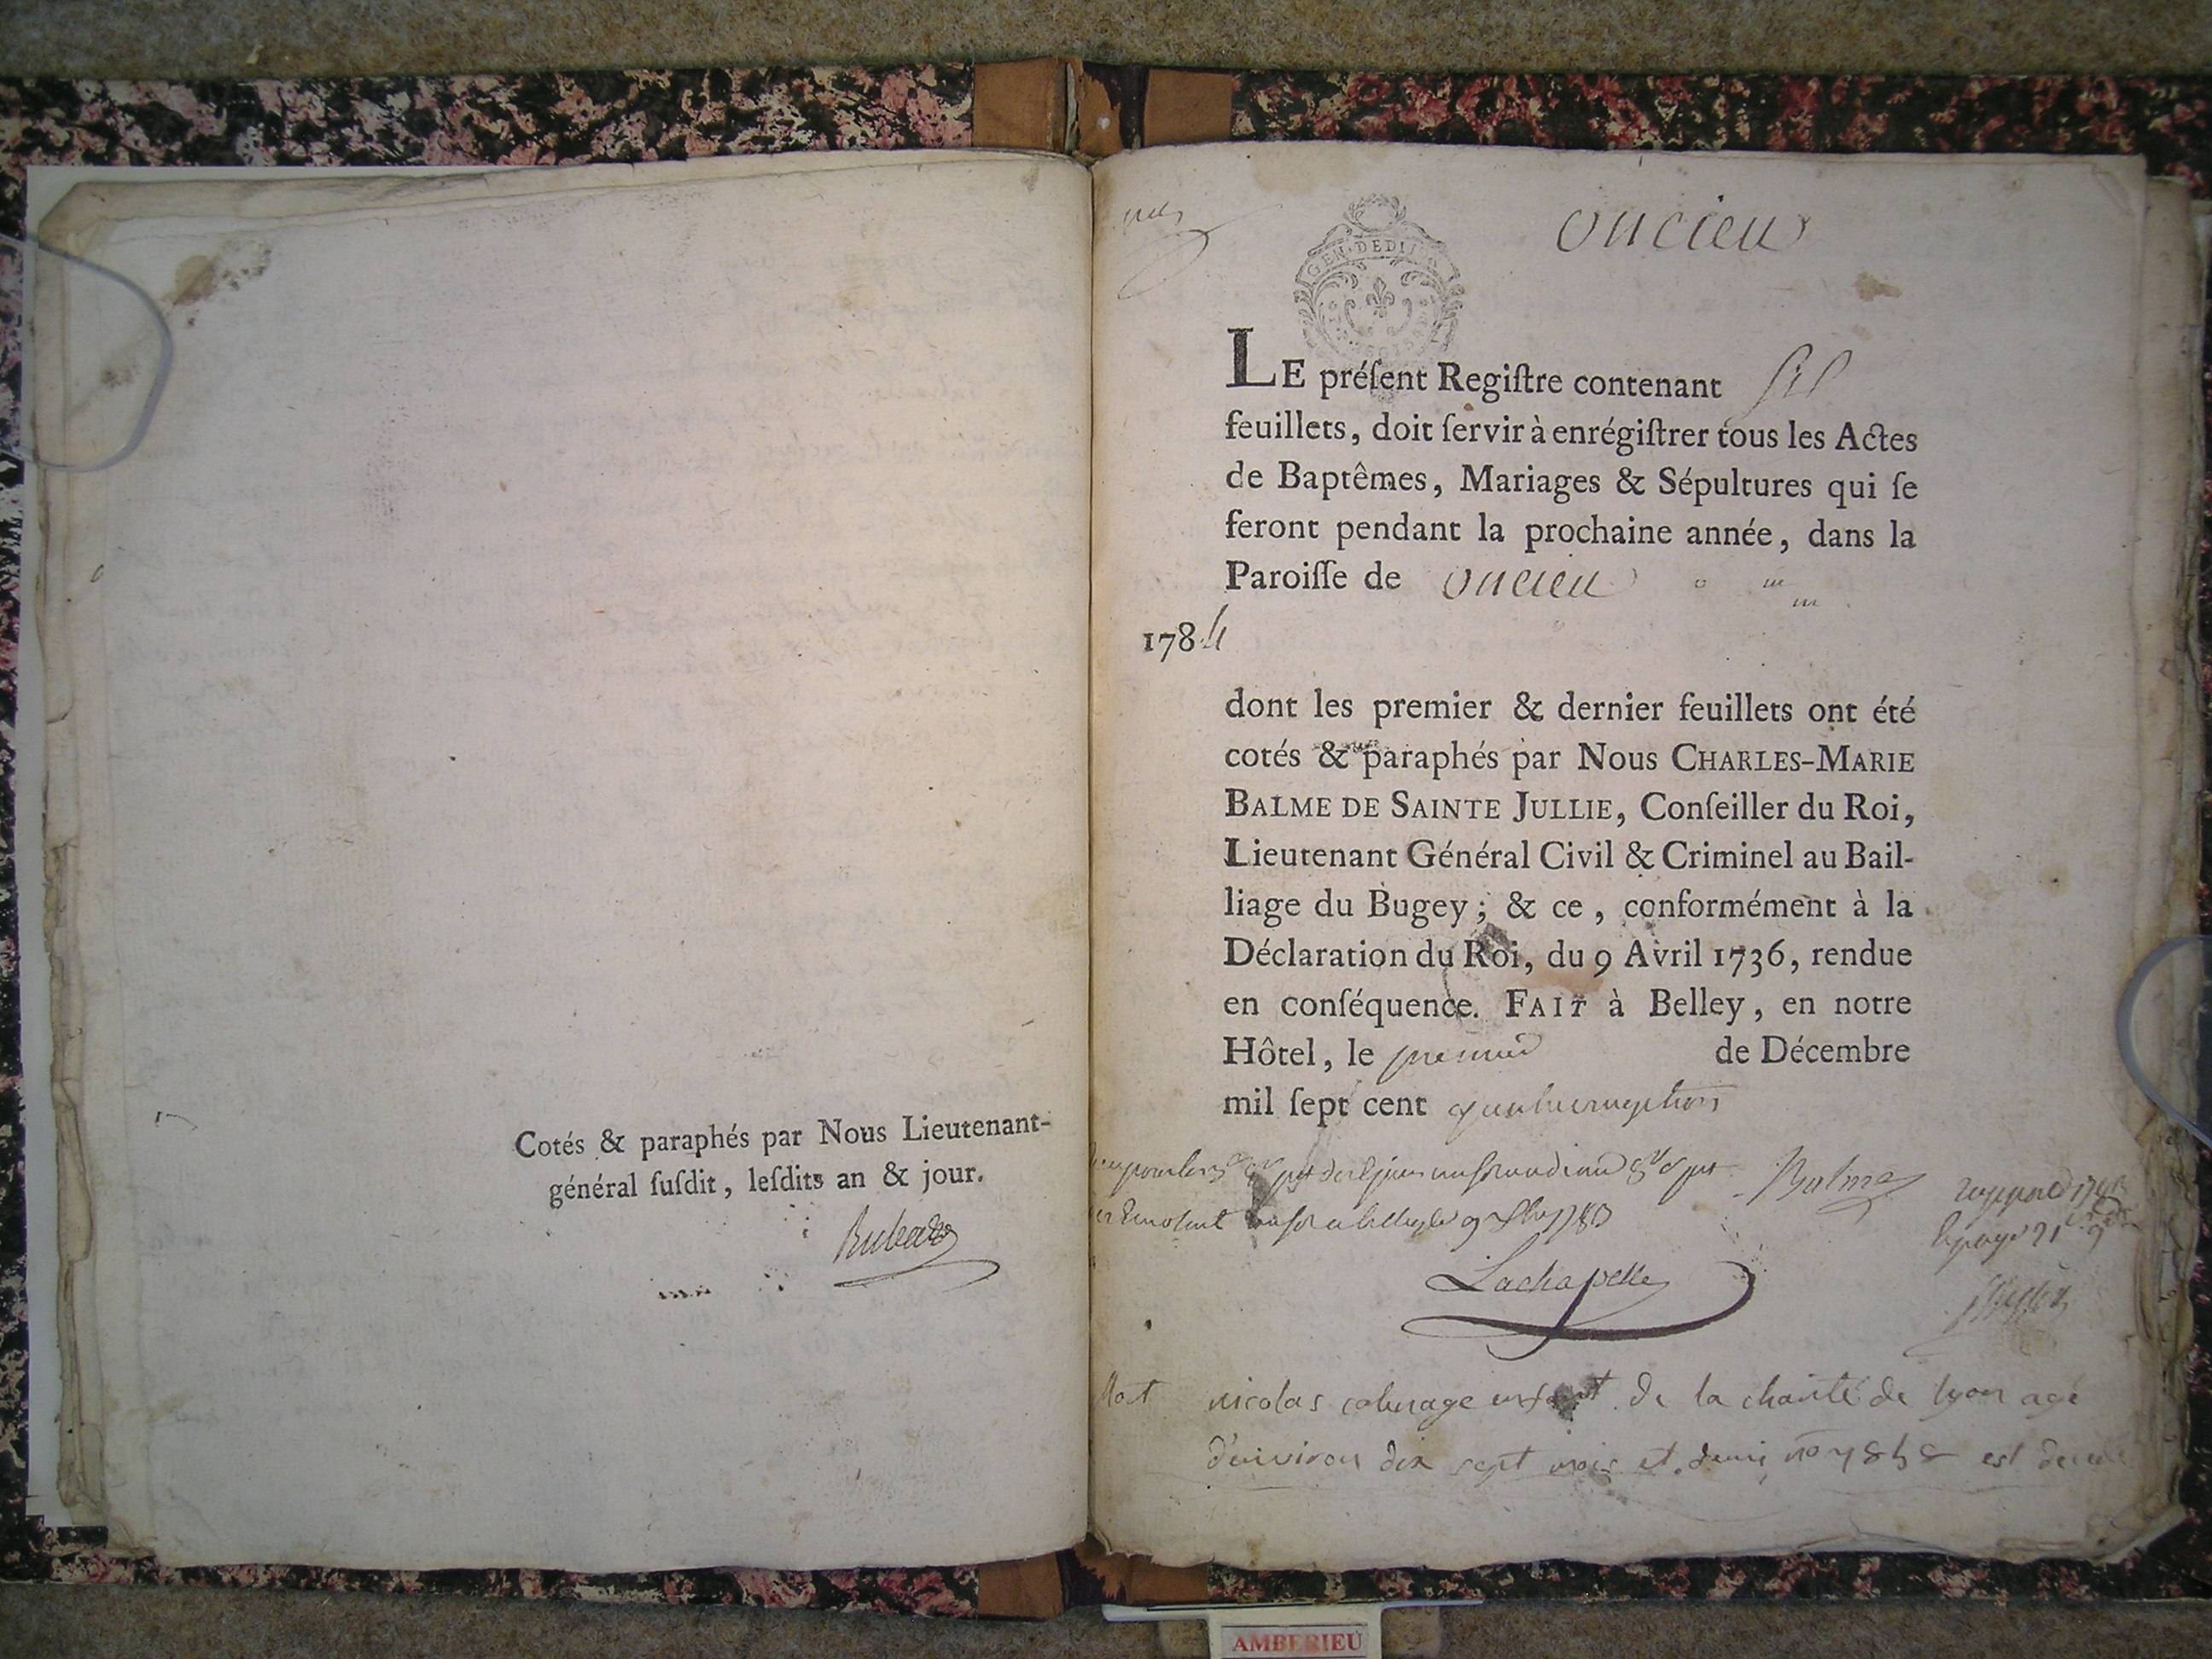 Cotés & paraphés par Nous Lieutenant-
général ſuſdit, leſdits an & jour.
oncieu
GEN. DEDIJON
LE préſent Regiſtre contenant ſix
feuillets, doit ſervir à enrégiſtrer tous les Actes
de Baptêmes, Mariages & Sépultures qui ſe
feront pendant la prochaine année, dans la
Paroiſſe de oncieu
1784
dont les premier & dernier feuillets ont été
cotés & paraphés par Nous CHARLES-MARIE
BALME DE SAINTE JULLIE, Conſeiller du Roi,
Lieutenant Général Civil & Criminel au Bail-
liage du Bugey; & ce, conformément à la
Déclaration du Roi, du 9 Avril 1736, rendue
en conſéquence. FAIT à Belley, en notre
Hôtel, le premier de Décembre
mil ſept cent quatrevingttrois
Balme
Lachapelle
Mort nicolas enfant de la charité de lyon agé
d'environ dix sept mois et demi est decede
AMBERIEU